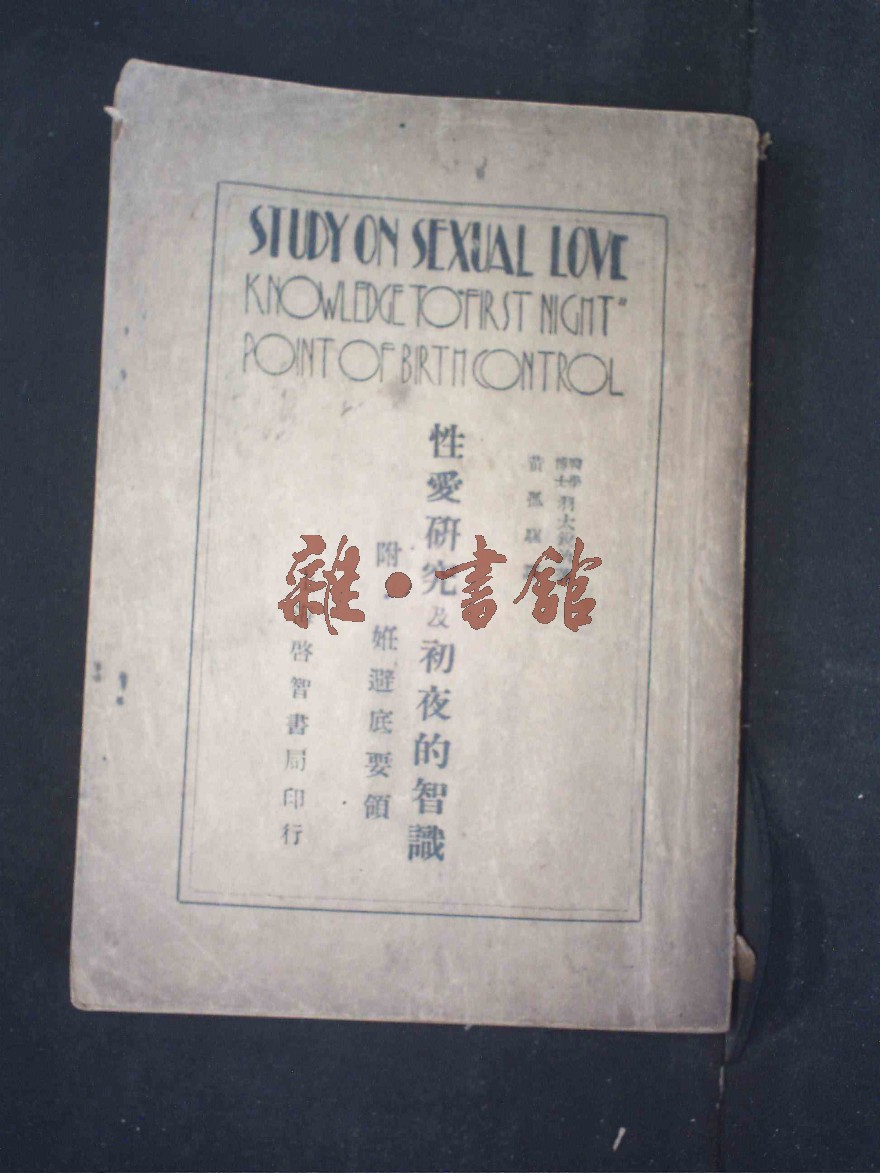 STUDY ON SEXUAL LOVE
KNOWLEDGE TO "FIRST NIGHT"
POINT OF BIRTH CONTROL
醫學博士 羽太銳治
黃孤
性愛研究及初夜的智識
附 妊避底要領
啓智書局印行
雜·書館